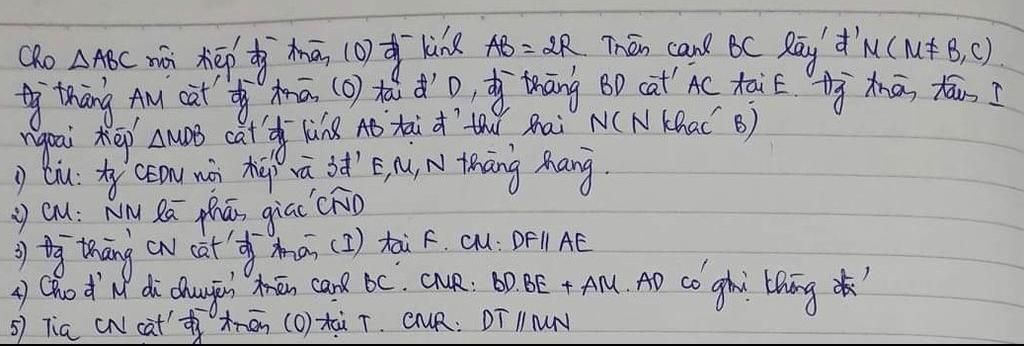 Cho △ABC nôi tiếp đg tròn (O) đg kính AB = 2R Trên cạnh BC lấy đ' M (M ≠ B, C).
đg thẳng AM cắt đg tròn (O) tại đ' D, đg thẳng BD cắt AC tại E. đg tròn tâm I
ngoại tiếp △MDB cắt đg kính AB tại đ' thứ hai N (N khác B)
1) CM: tg CEDM nội tiếp và 3đ' E, M, N thẳng hàng.
2) CM: NM là phân giác CND
3) đg thẳng CN cắt đg tròn (I) tại F. CM: DF // AE
4) Cho đ' M di chuyển trên cạnh BC. CMR: BD.BE + AM.AD có ghi không đổi
5) Tia CN cắt đg tròn (O) tại T. CMR: DT // MN